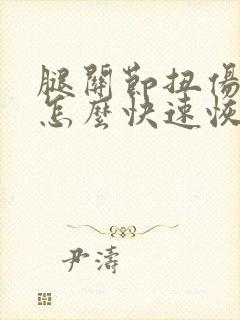 腿關節扭傷
怎麼快速恢
尹濤